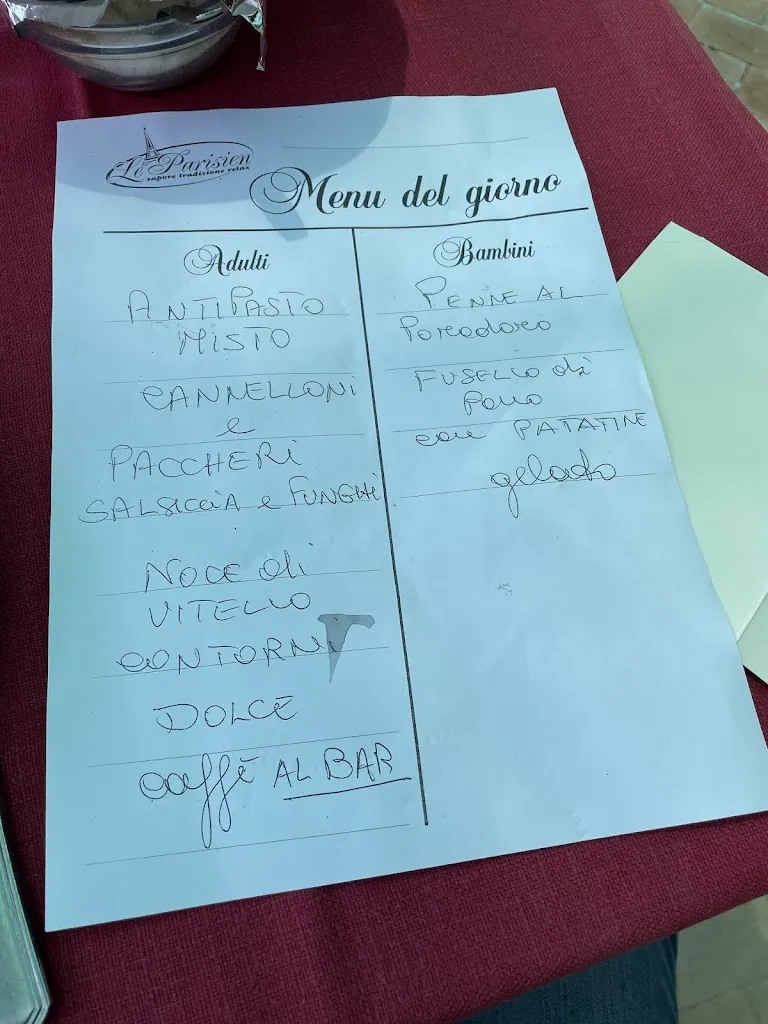 Le Parisien
sapore tradizione relax
Menu del giorno
Adulti
ANTIPASTO
MISTO
CANNELLONI
e
PACCHERI
SALSICCIA e FUNGHI
NOCE di
VITELLO
CONTORNI
DOLCE
caffè AL BAR
Bambini
PENNE AL
Pomodoro
FUSELLO di
Pollo
con PATATINE
gelato